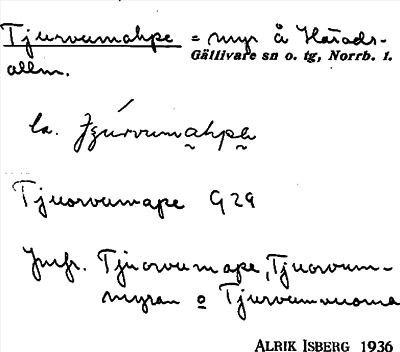 Tjurvumahpe = myr å Härads-
Gällivare sn o. tg, Norrb. l.
allm.
la.
Tjuorvumape G 29
Jmfr. Tjuorvumape, Tjuorvum-
myran o Tjurvumvuoma
ALRIK ISBERG 1936